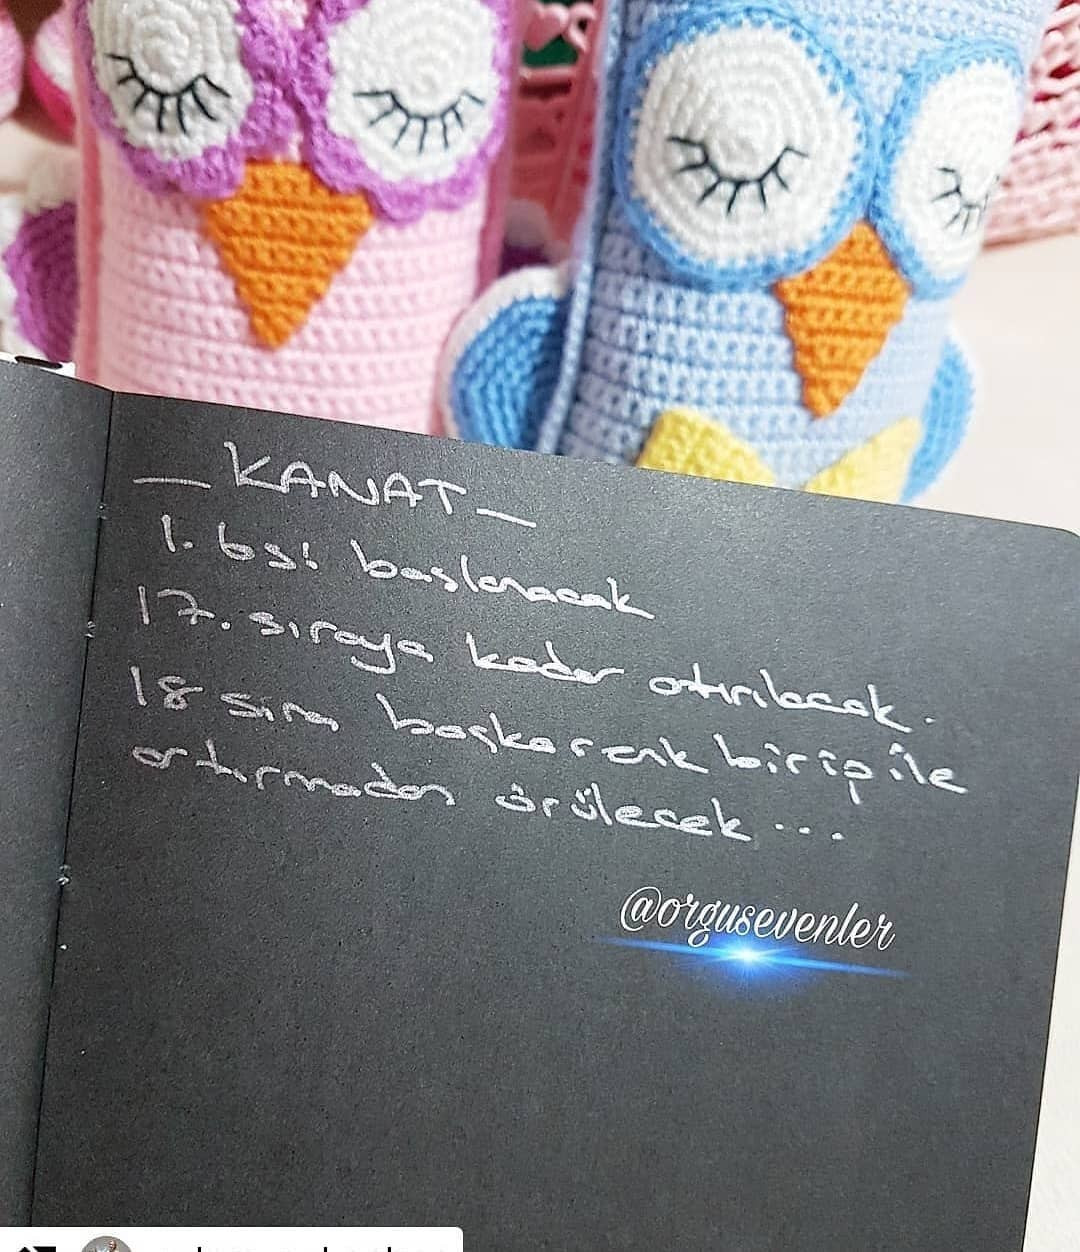 _ KANAT _
1. 6sı başlanacak
17. sıraya kadar artırılacak.
18 sıra başka renk bir ip ile
artırmadan örülecek...
@orgusevenler